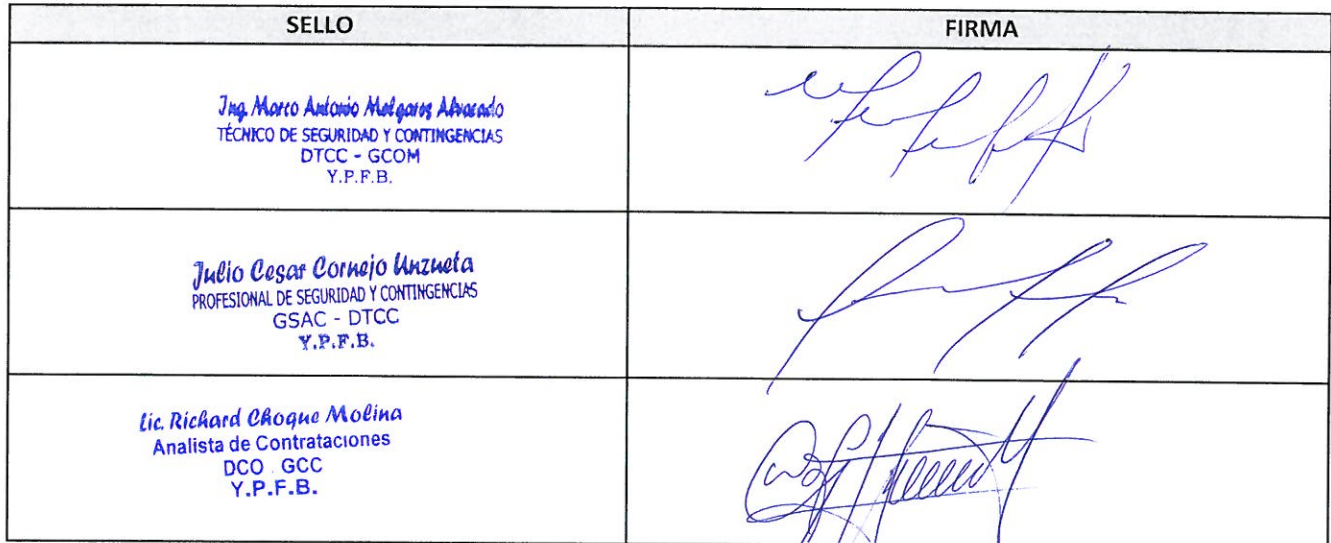 SELLO
FIRMA
Ing. Marco Antonio Melgarez Alvarado
TÉCNICO DE SEGURIDAD Y CONTINGENCIAS
DTCC - GCOM
Y.P.F.B.
Julio Cesar Cornejo Unzueta
PROFESIONAL DE SEGURIDAD Y CONTINGENCIAS
GSAC - DTCC
Y.P.F.B.
Lic. Richard Choque Molina
Analista de Contrataciones
DCO GCC
Y.P.F.B.